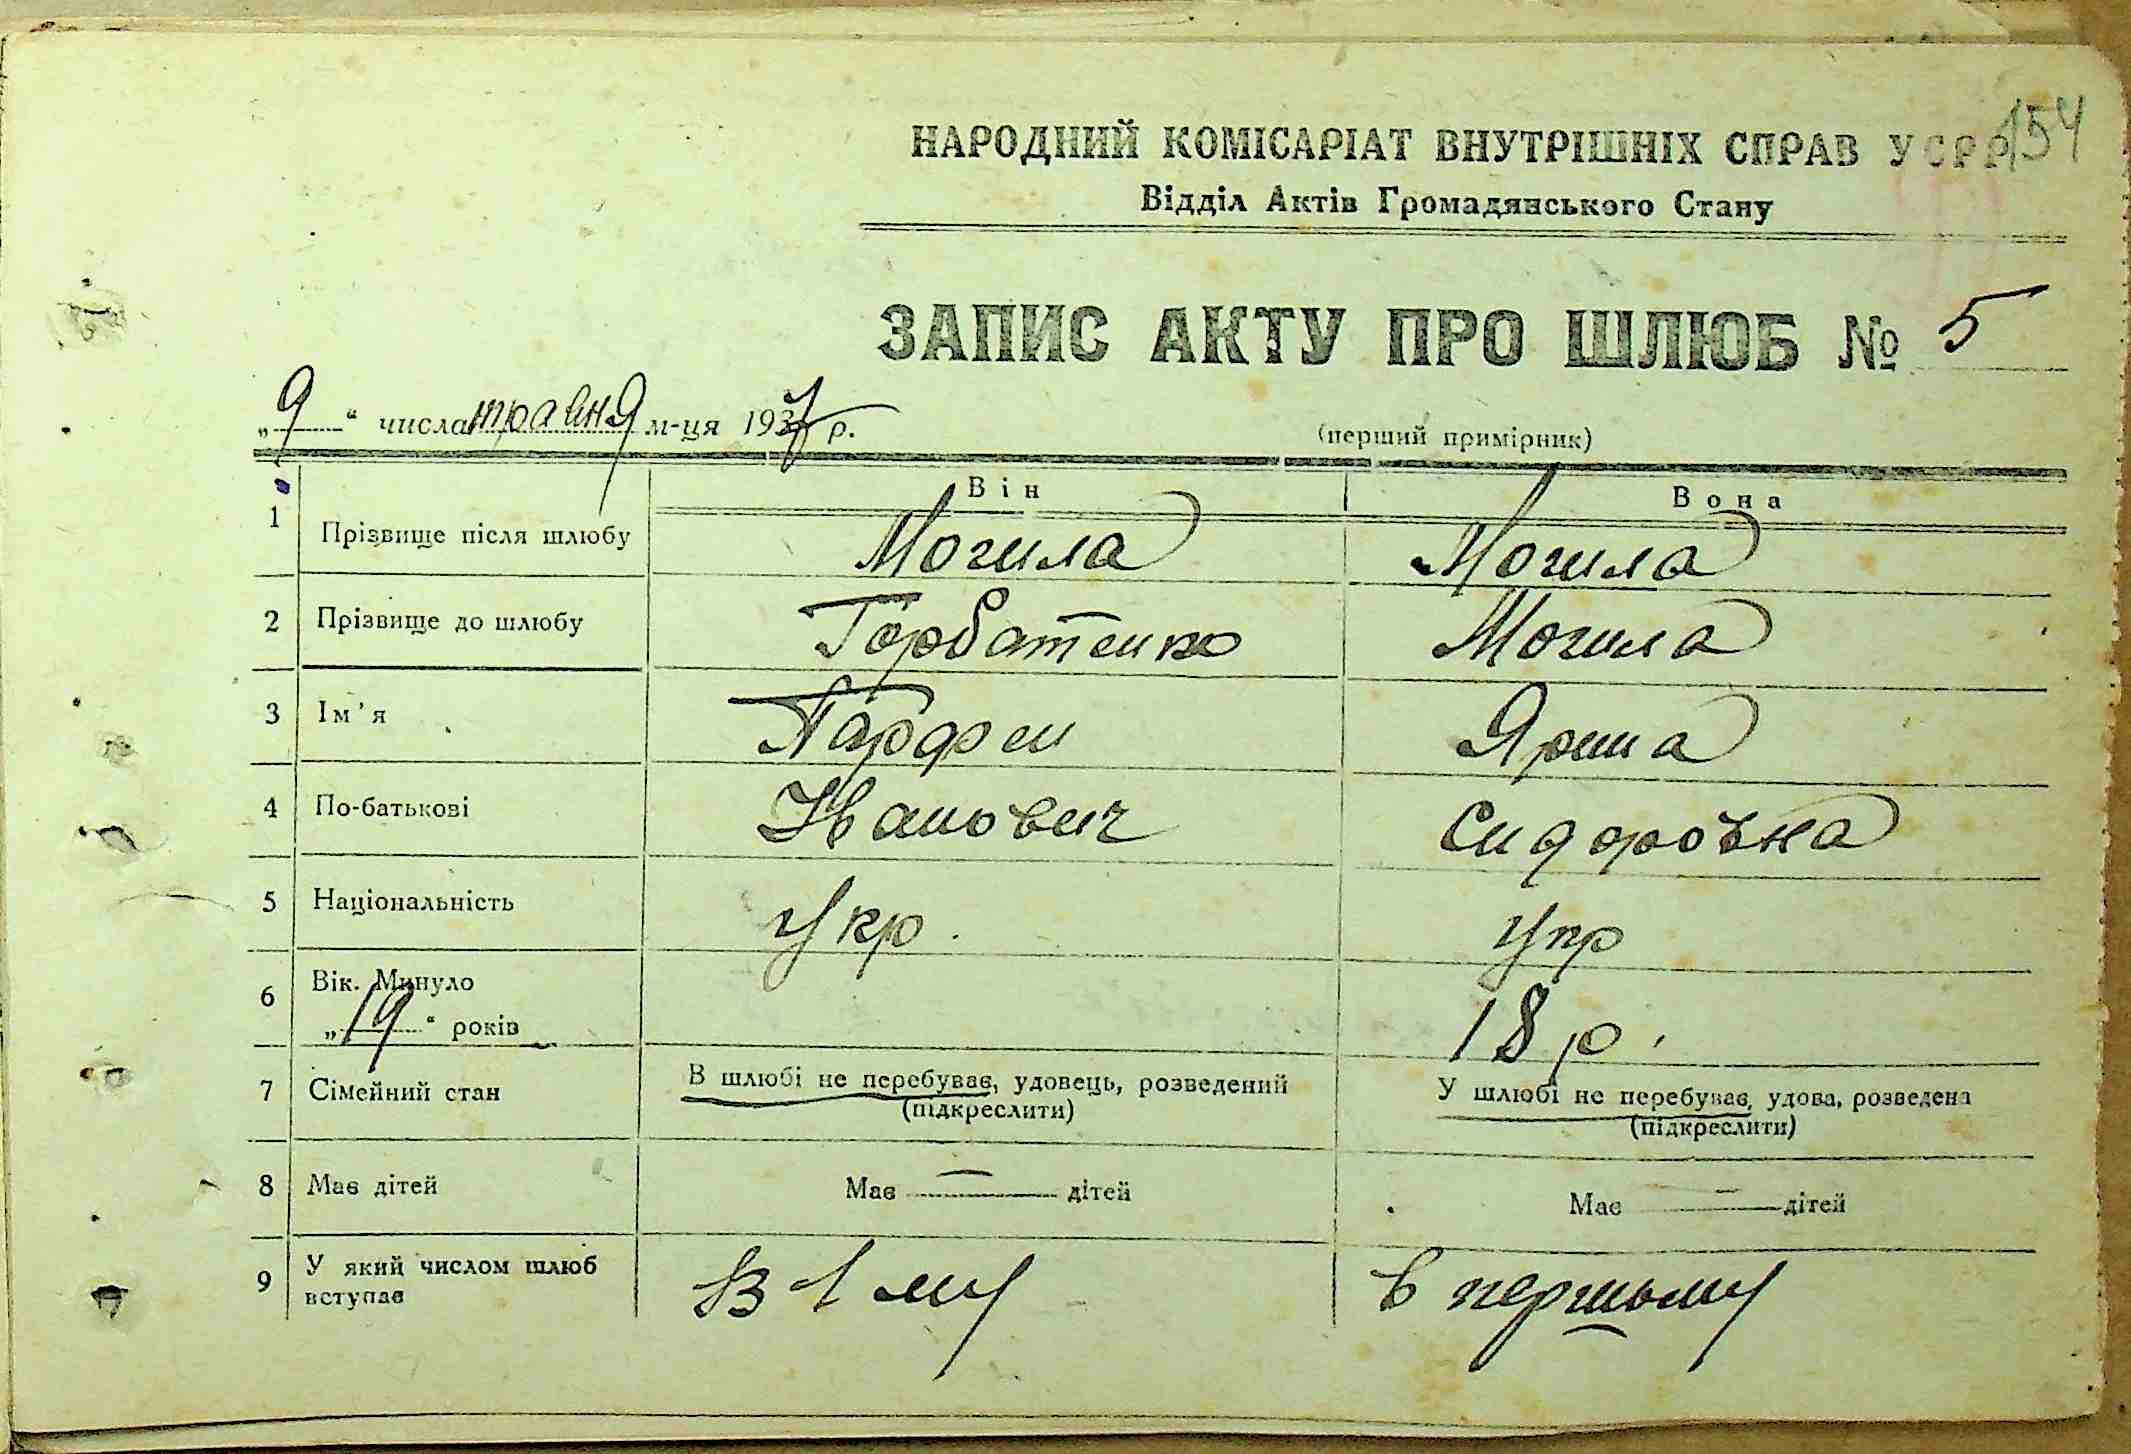 154
НАРОДНИЙ КОМІСАРІАТ ВНУТРІШНІХ СПРАВ УСРР
Відділ Актів Громадянського Стану
ЗАПИС АКТУ ПРО ШЛЮБ № 5
„9“ числа травня м-ця 1937 р.
(перший примірник)
Він Вона
1 Прізвище після шлюбу Могила Могила
2 Прізвище до шлюбу Горбатенко Могила
3 Ім'я Парфен Ярина
4 По-батькові Иванович Сидоровна
5 Національність Укр. Укр
6 Вік. Минуло
„19“ років 18 р.
7 Сімейний стан В шлюбі не перебуває, удовець, розведений У шлюбі не перебуває, удова, розведена
(підкреслити) (підкреслити)
8 Має дітей Має — дітей Має — дітей
9 У який числом шлюб
вступає В 1 му в першому